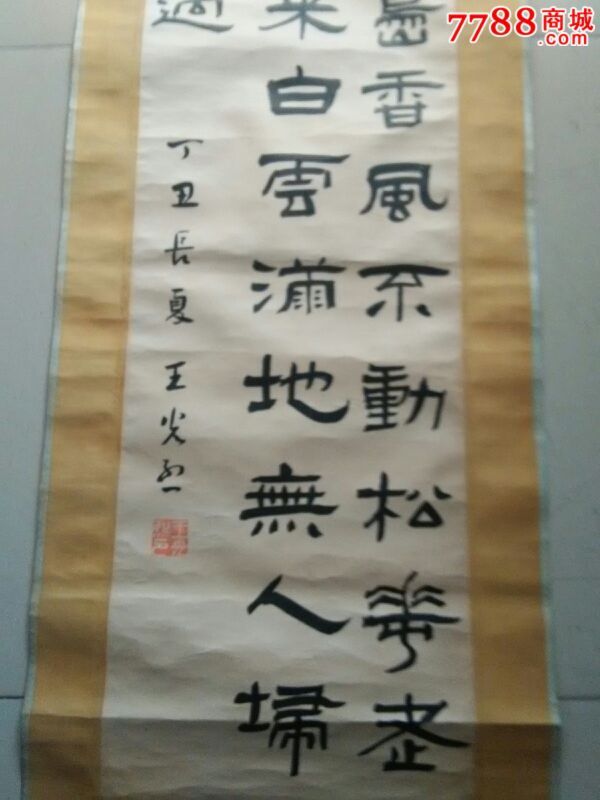 香風不動松花老
来白雲滿地無人掃
過
丁丑長夏 王光烈
7788商城
.com